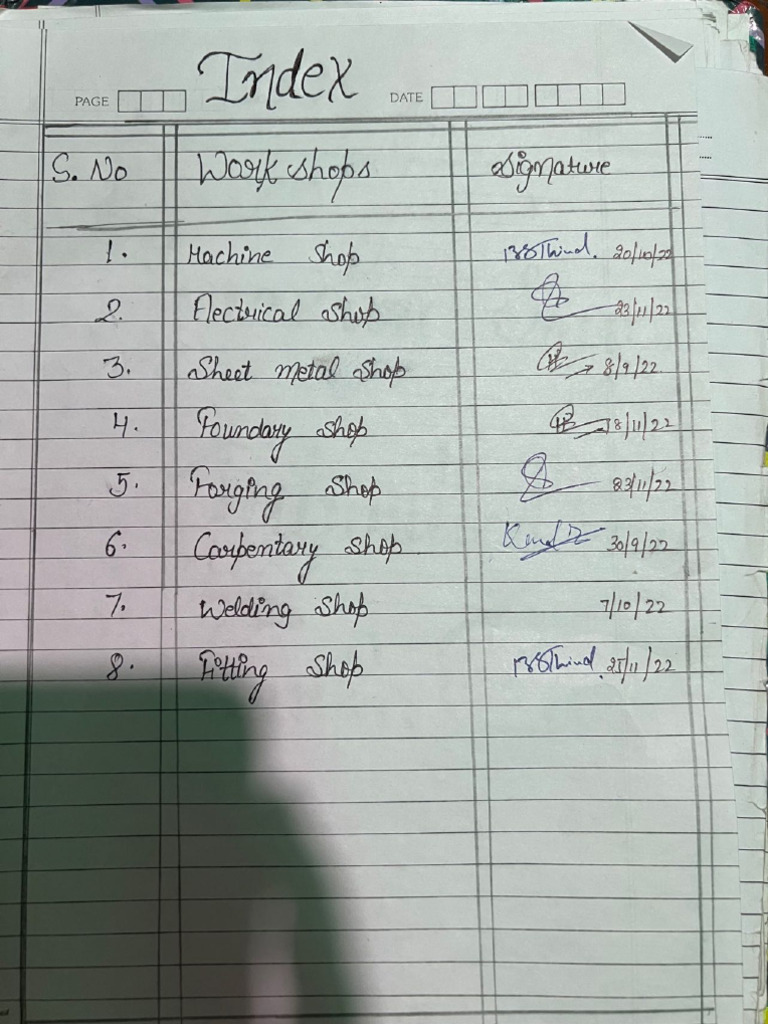 Index
PAGE DATE
S. No Workshops Signature
1. Machine Shop BSThind. 20/10/22
2. Electrical Shop 23/11/22
3. Sheet metal Shop 8/9/22
4. Foundary Shop 18/11/22
5. Forging Shop 23/11/22
6. Carpentary Shop 30/9/22
7. Welding Shop 7/10/22
8. Fitting Shop BSThind. 25/11/22